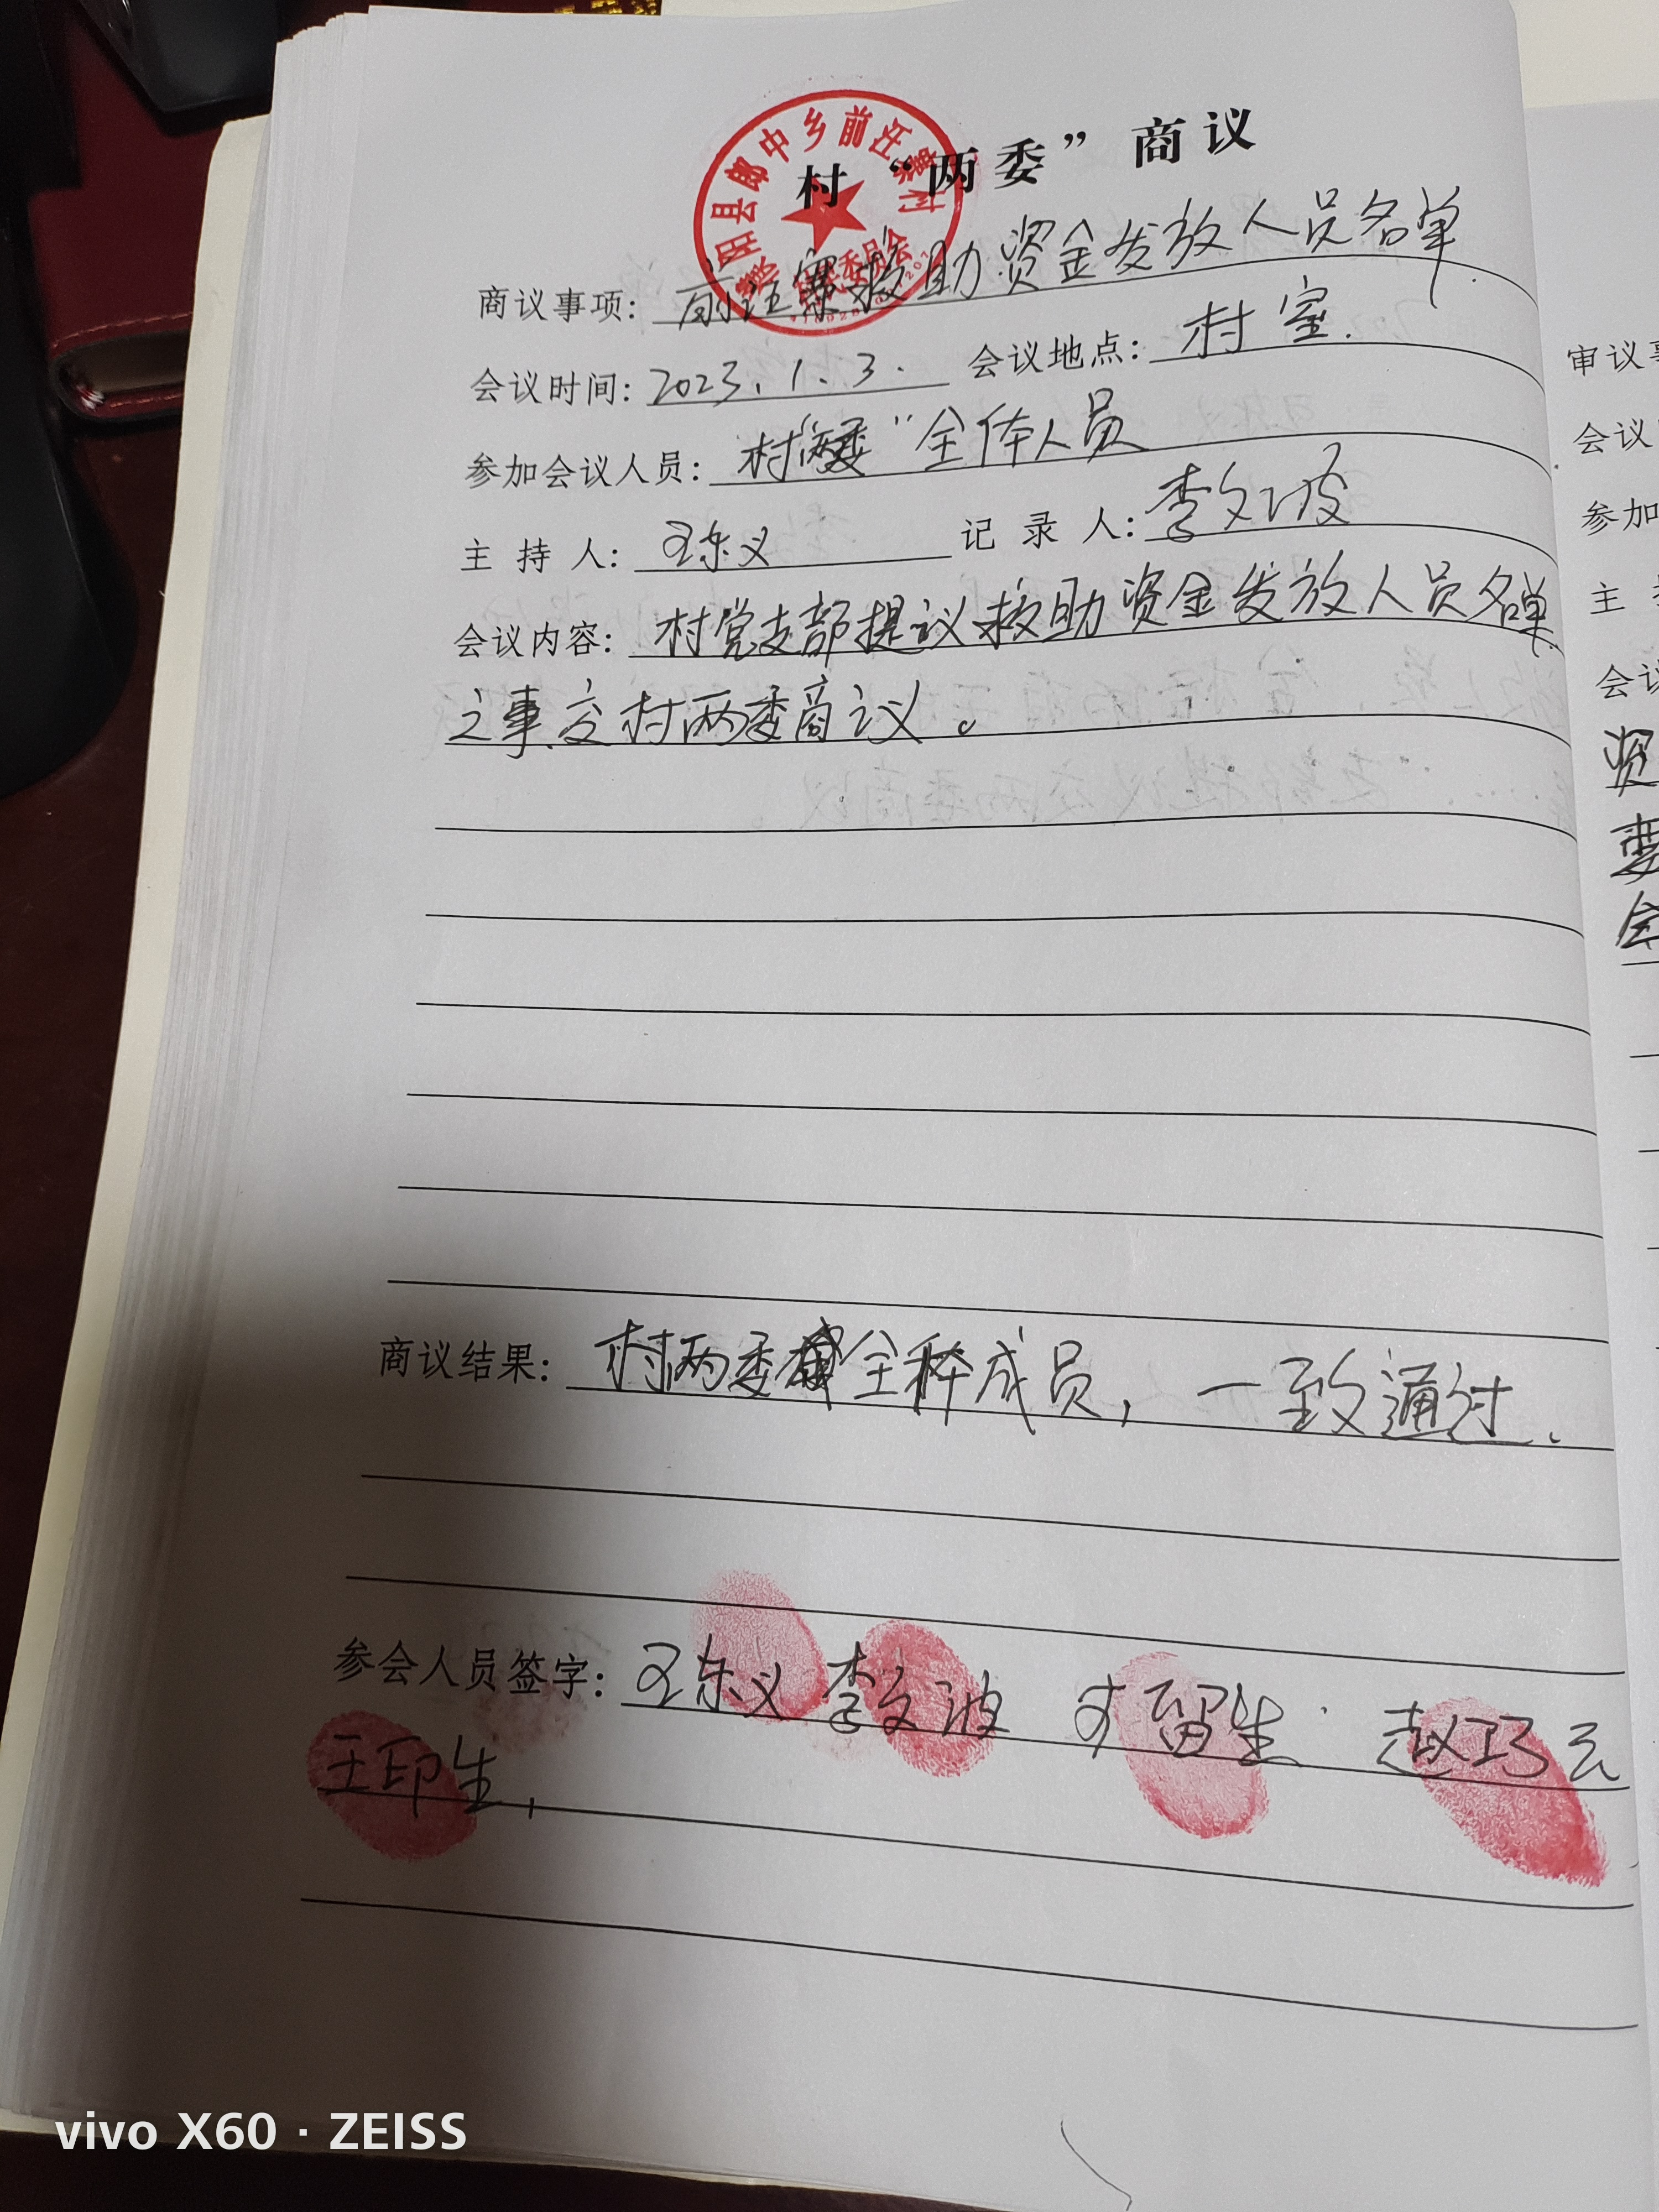 村“两委”商议
商议事项: 前汪寨救助资金发放人员名单.
会议时间: 2023.1.3. 会议地点: 村室.
参加会议人员: 村“两委”全体人员
主 持 人: 王东义 记 录 人: 李文波
会议内容: 村党支部提议救助资金发放人员名单
之事交村两委商议。
商议结果: 村两委全体成员,一致通过.
参会人员签字: 王东义 李文波 留生 赵巧云
王印生,
县郎中乡前汪寨村
村民委员会
审议
会议
参加
主
会议
资
委
全
vivo X60 · ZEISS